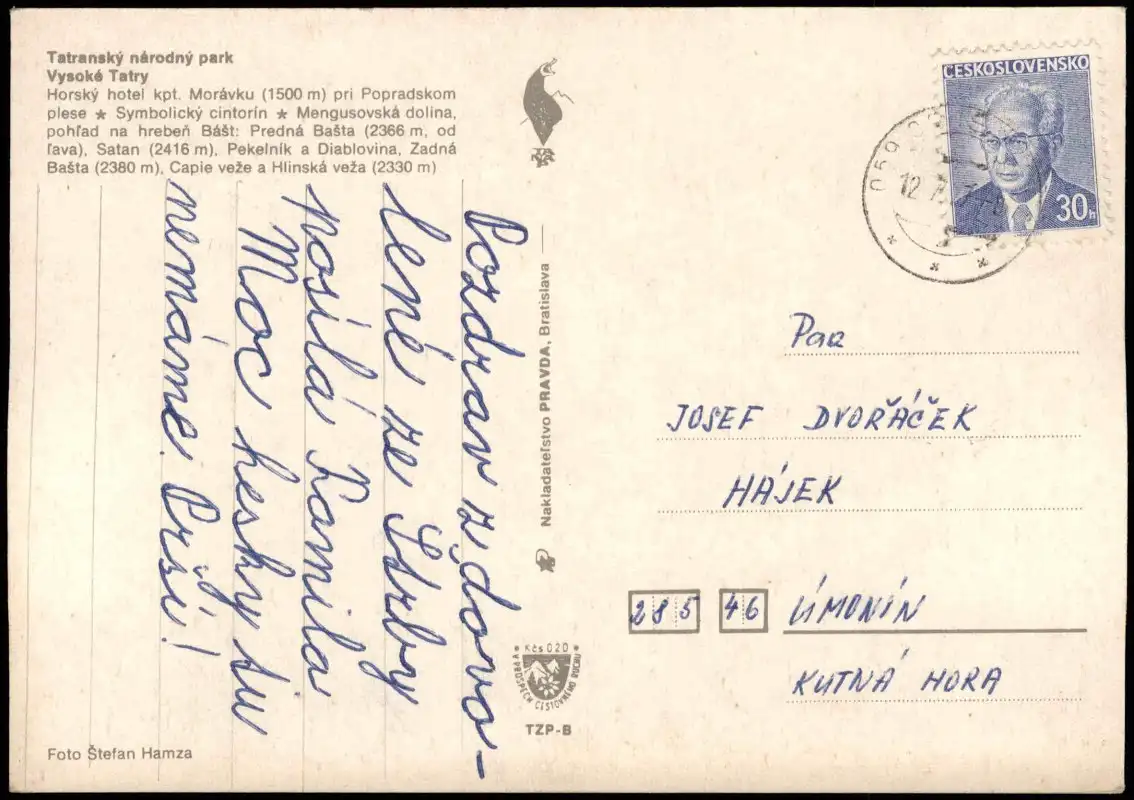 Tatranský národný park
Vysoké Tatry
Horský hotel kpt. Morávku (1500 m) pri Popradskom
plese ★ Symbolický cintorín ★ Mengusovská dolina,
pohľad na hrebeň Bášt: Predná Bašta (2366 m, od
ľava), Satan (2416 m), Pekelník a Diablovina, Zadná
Bašta (2380 m), Capie veže a Hlinská veža (2330 m)
Pozdrav z dovo-
lené ze Štrby
posílá Kamila
Moc hesky tu
nemáme. Prší!
Nakladateľstvo PRAVDA, Bratislava
Kčs 0.20
V PROSPECH CESTOVNÉHO RUCHU
TZP-B
Foto Štefan Hamza
ČESKOSLOVENSKO
30h
059
12
Pan
JOSEF DVOŘÁČEK
HÁJEK
285 46 ÚMONÍN
KUTNÁ HORA